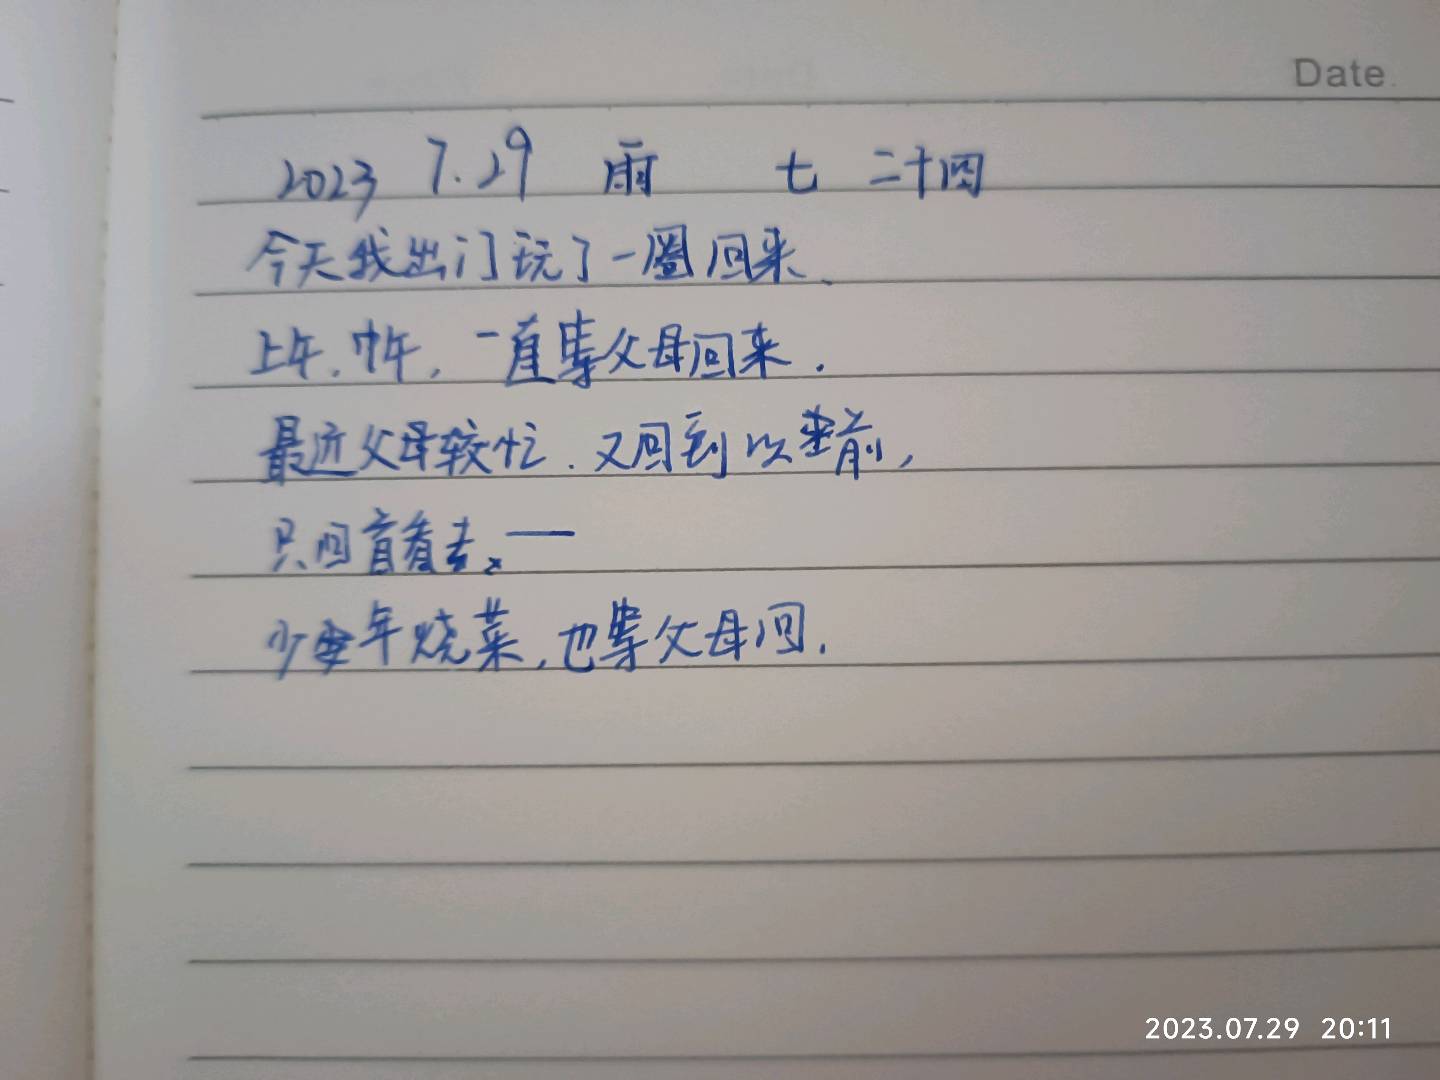 Date.
2023 7.29 雨 七 二十四
今天我出门玩了一圈回来、
上午、中午,一直等父母回来.
最近父母较忙.又回到以前,
只回首看去。——
少年烧菜,也等父母回.
2023.07.29 20:11